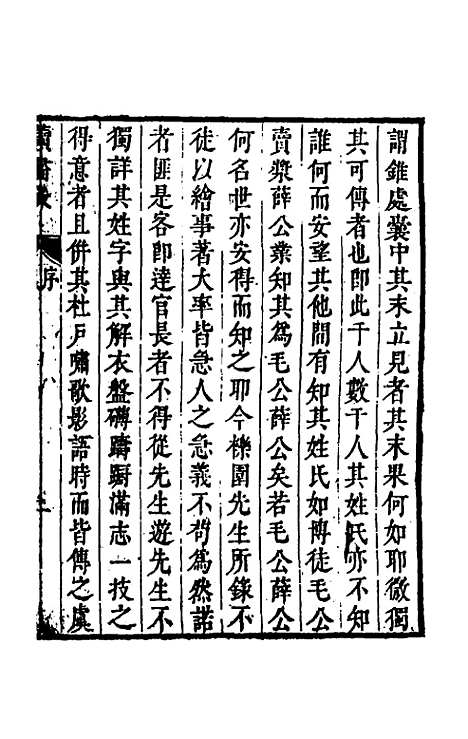 謂錐處囊中其末立見者其末果何如耶微獨
其可傳者也即此千人數千人其姓氏亦不知
誰何而安望其他間有知其姓氏如博徒毛公
賣漿薛公業知其爲毛公薛公矣若毛公薛公
何名世亦安得而知之耶今櫟園先生所錄不
徒以繪事著大率皆急人之急義不苟爲然諾
者匪是客即達官長者不得從先生遊先生不
獨詳其姓字與其解衣盤礴躊躇滿志一技之
得意者且併其杜戶嘯歌影語時而皆傳之虞
讀畫錄
序